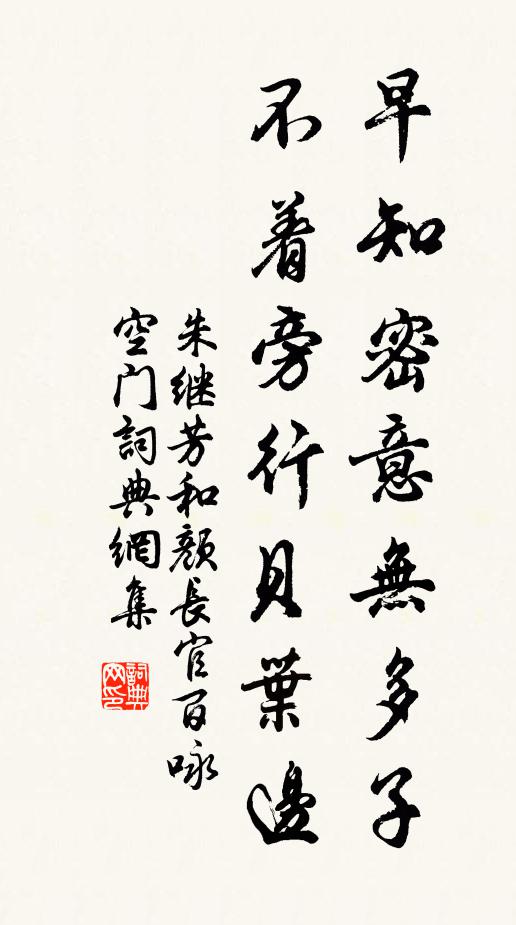 早知密意無多子
不着旁行貝葉邊
朱継芳和顏長官百咏
空门詞典網集
詞典网印